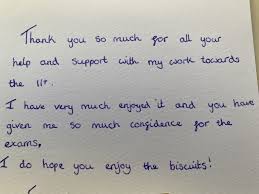 Thank you so much for all your
help and support with my work towards
the 11+.
I have very much enjoyed it and you have
given me so much confidence for the
exams,
I do hope you enjoy the biscuits!